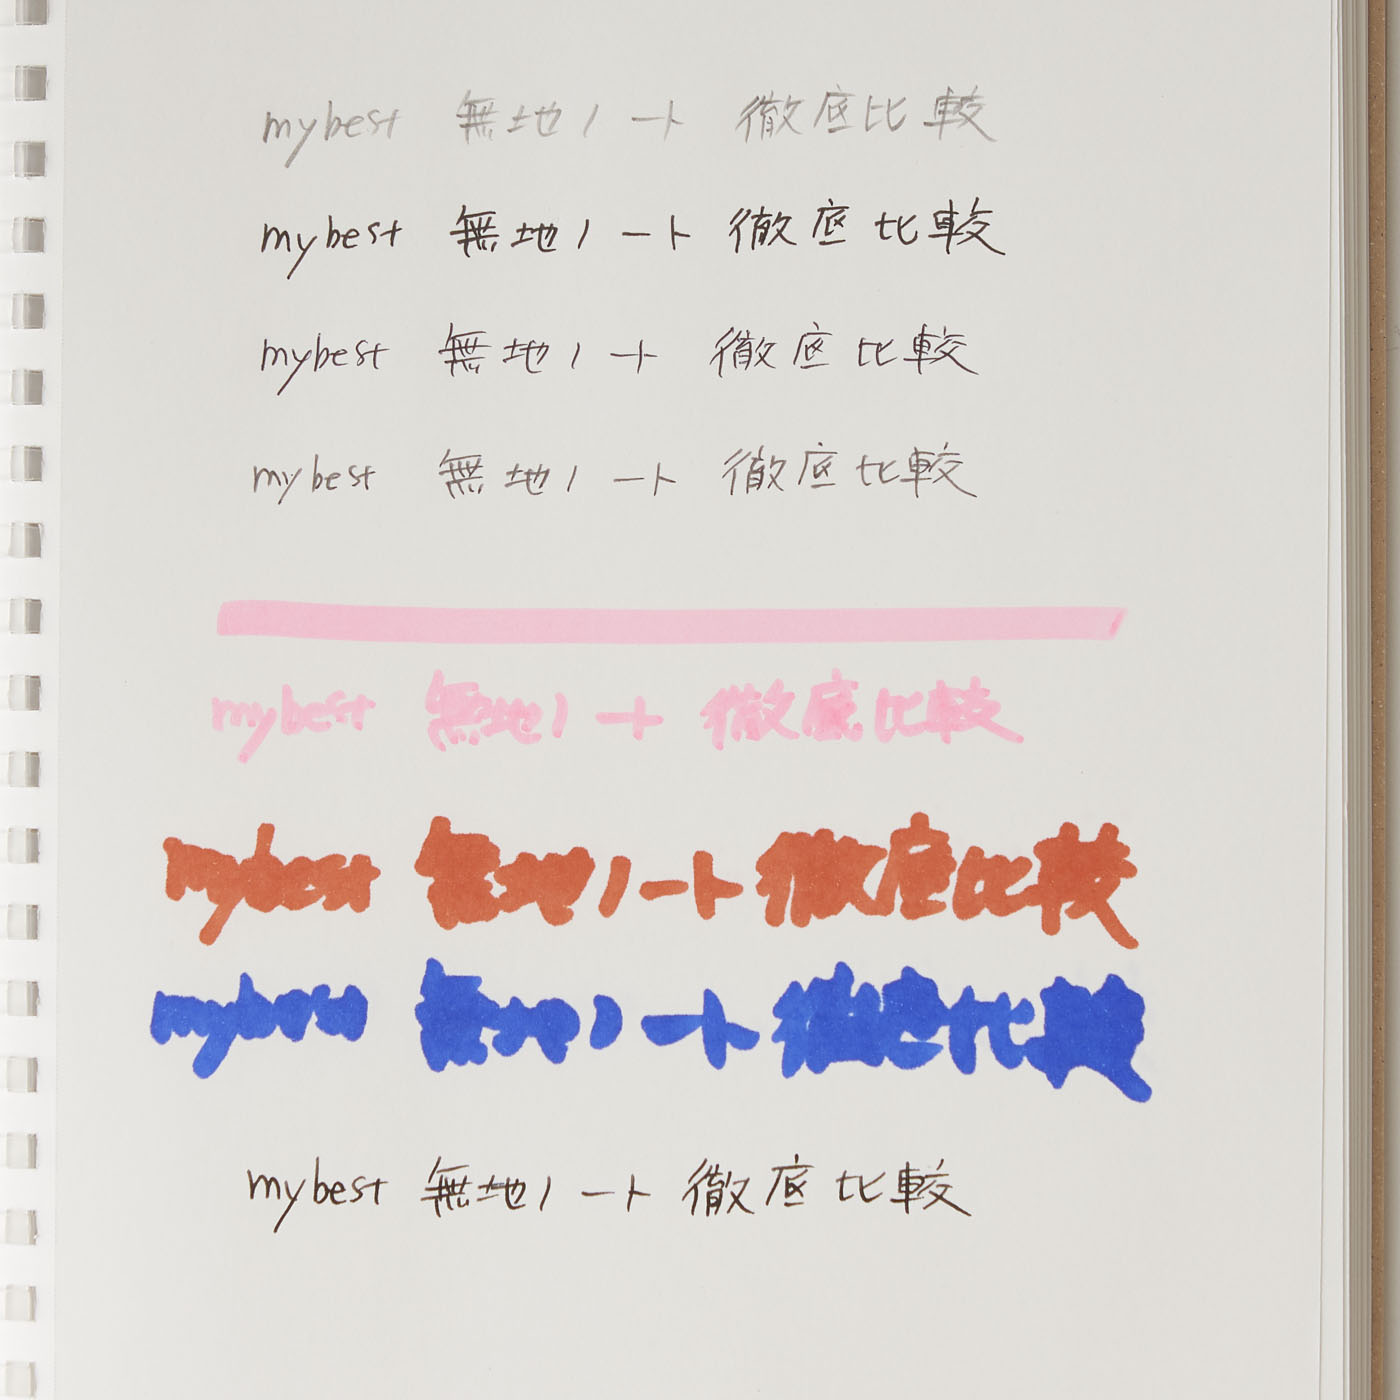 mybest 無地ノート 徹底比較
mybest 無地ノート 徹底比較
mybest 無地ノート 徹底比較
mybest 無地ノート 徹底比較
mybest 無地ノート 徹底比較
mybest 無地ノート 徹底比較
mybest 無地ノート 徹底比較
mybest 無地ノート 徹底比較